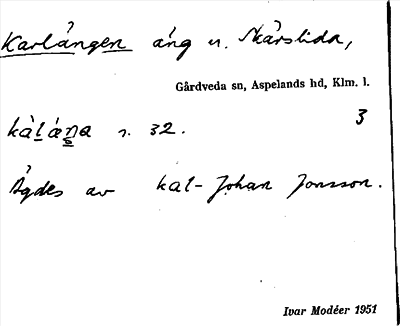 Karlången äng u. Skärslida,
Gårdveda sn, Aspelands hd, Klm. l.
3
n. 32.
Ägdes av kal-Johan Jonsson.
Ivar Modéer 1951